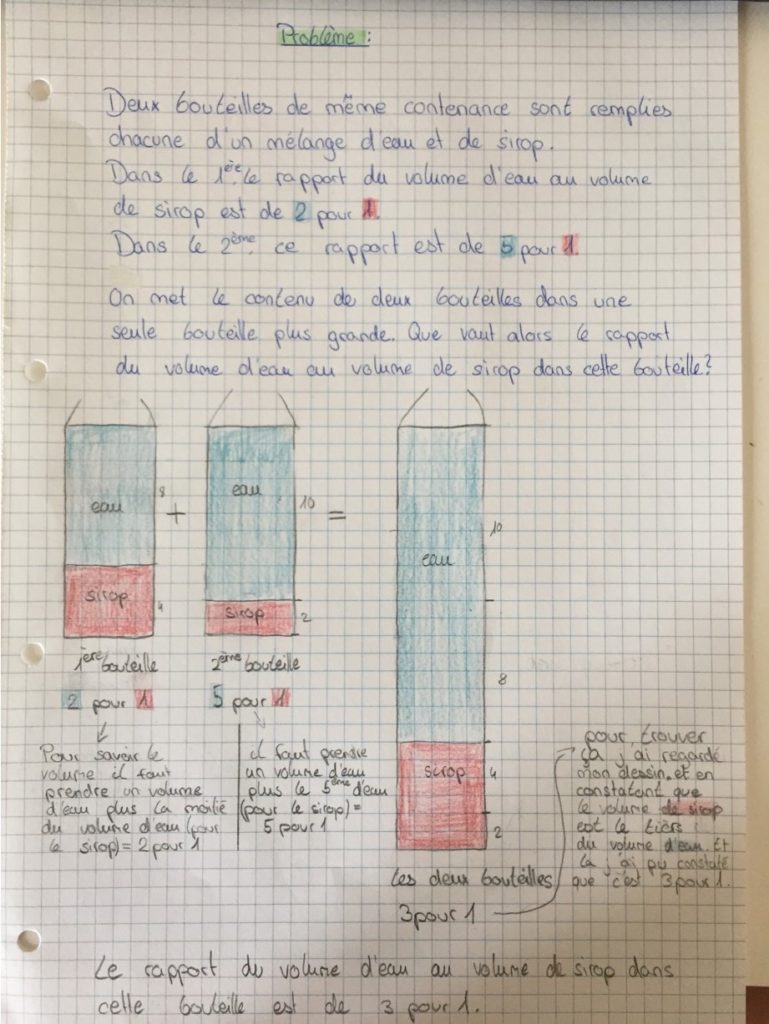 Problème :
Deux bouteilles de même contenance sont remplies
chacune d'un mélange d'eau et de sirop.
Dans le 1ère le rapport du volume d'eau au volume
de sirop est de 2 pour 1.
Dans le 2ème ce rapport est de 5 pour 1.
On met le contenu de deux bouteilles dans une
seule bouteille plus grande. Que vaut alors le rapport
du volume d'eau au volume de sirop dans cette bouteille?
eau
8
sirop
4
+
eau
10
sirop
2
=
10
eau
8
sirop
4
2
1ère bouteille
2 pour 1
2ème bouteille
5 pour 1
Pour savoir le
volume il faut
prendre un volume
d'eau plus la moitié
du volume d'eau (pour
le sirop) = 2 pour 1
il faut prendre
un volume d'eau
plus le 5ème d'eau
(pour le sirop) =
5 pour 1
Les deux bouteilles
3 pour 1
pour trouver
ça j'ai regardé
mon dessin. et en
constatant que
le volume de sirop
est le tiers
du volume d'eau. Et
là j'ai pu constaté
que c'est 3 pour 1.
Le rapport du volume d'eau au volume de sirop dans
cette bouteille est de 3 pour 1.